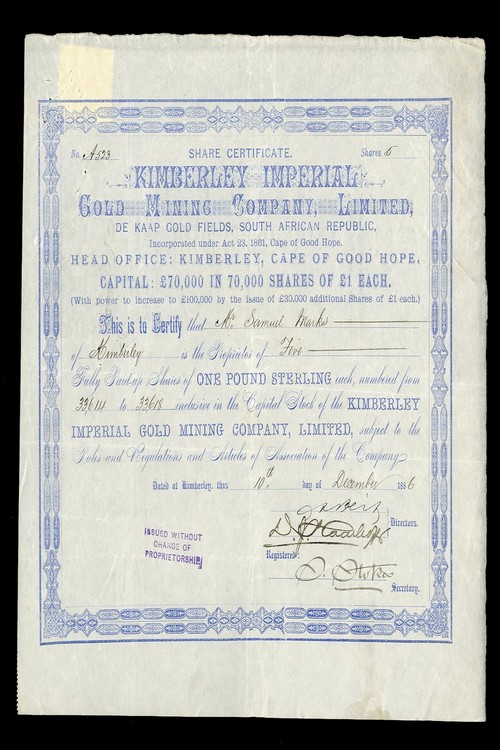 No. A523 SHARE CERTIFICATE. Shares 5
KIMBERLEY IMPERIAL
GOLD MINING COMPANY, LIMITED,
DE KAAP GOLD FIELDS, SOUTH AFRICAN REPUBLIC,
Incorporated under Act 23, 1861, Cape of Good Hope.
HEAD OFFICE: KIMBERLEY, CAPE OF GOOD HOPE.
CAPITAL: £70,000 IN 70,000 SHARES OF £1 EACH.
(With power to increase to £100,000 by the issue of £30,000 additional Shares of £1 each.)
This is to Certify that Mr Samuel Marks
of Kimberley is the Proprietor of Five
Fully Paid-up Shares of ONE POUND STERLING each, numbered from
33,614 to 33,618 inclusive in the Capital Stock of the KIMBERLEY
IMPERIAL GOLD MINING COMPANY, LIMITED, subject to the
Rules and Regulations and Articles of Association of the Company
Dated at Kimberley, this 10th day of December 1886
Directors.
ISSUED WITHOUT
CHANGE OF
PROPRIETORSHIP
Registered:
Secretary.